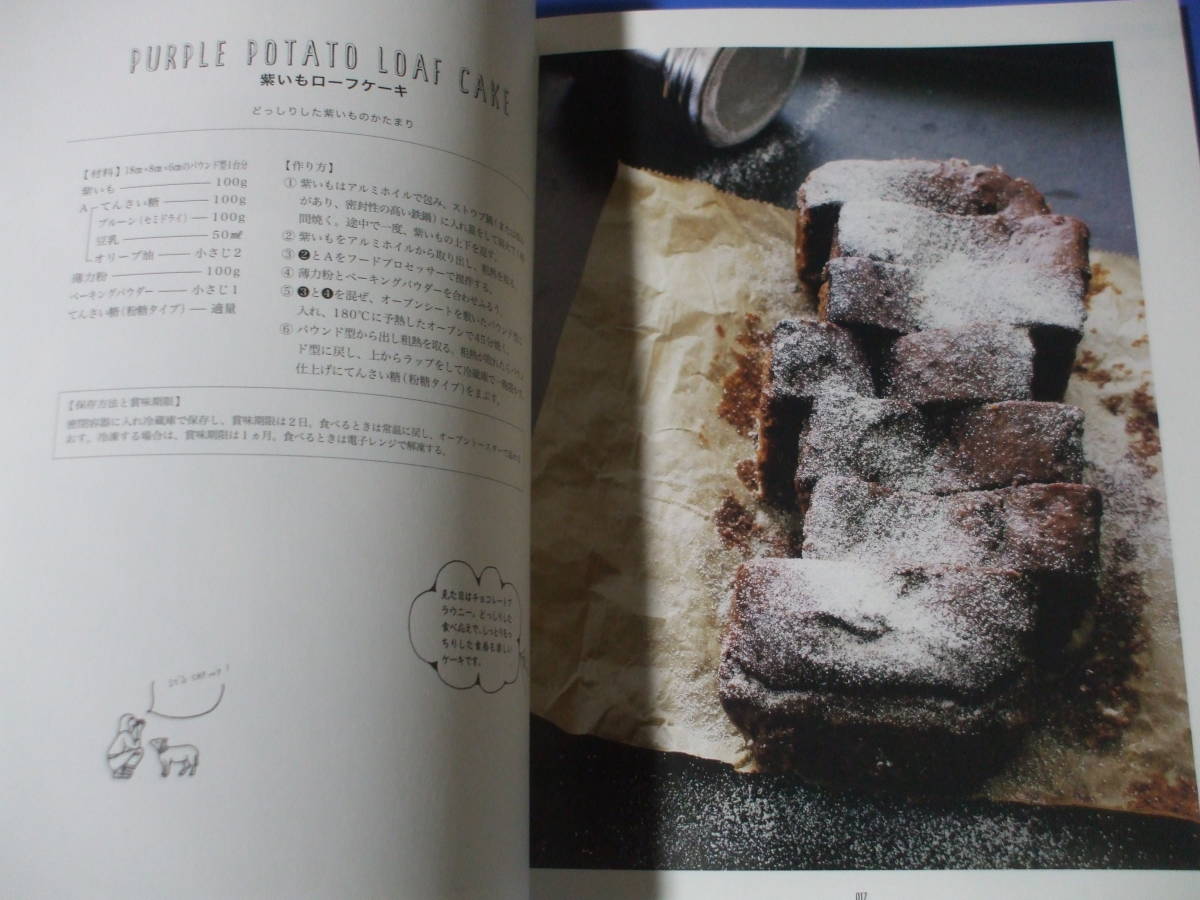 PURPLE POTATO LOAF CAKE
紫いもローフケーキ
どっしりした紫いものかたまり
【材料】18cm×8cm×6cmのパウンド型1台分
紫いも 100g
A てんさい糖 100g
プルーン(セミドライ) 100g
豆乳 50㎖
オリーブ油 小さじ2
薄力粉 100g
ベーキングパウダー 小さじ1
てんさい糖(粉糖タイプ) 適量
【作り方】
① 紫いもはアルミホイルで包み、ストウブ鍋(または
があり、密封性の高い鉄鍋)に入れ蓋をして
間焼く。途中で一度、紫いもの上下を返す。
② 紫いもをアルミホイルから取り出し、粗熱を取る。
③ ❷とAをフードプロセッサーで撹拌する。
④ 薄力粉とベーキングパウダーを合わせふるう。
⑤ ❸と❹を混ぜ、オーブンシートを敷いたパウンド型に
入れ、180℃に予熱したオーブンで45分焼く。
⑥ パウンド型から出し粗熱を取る。粗熱が取れたらパウン
ド型に戻し、上からラップをして冷蔵庫で一晩
仕上げにてんさい糖(粉糖タイプ)をまぶす。
【保存方法と賞味期限】
密閉容器に入れ冷蔵庫で保存し、賞味期限は2日。食べるときは常温に戻し、オーブントースターで温めな
おす。冷凍する場合は、賞味期限は1ヵ月。食べるときは電子レンジで解凍する。
見た目はチョコレートブ
ラウニー。どっしりした
食べ応えで、しっとりもっ
ちりした食感も楽しい
ケーキです。
017